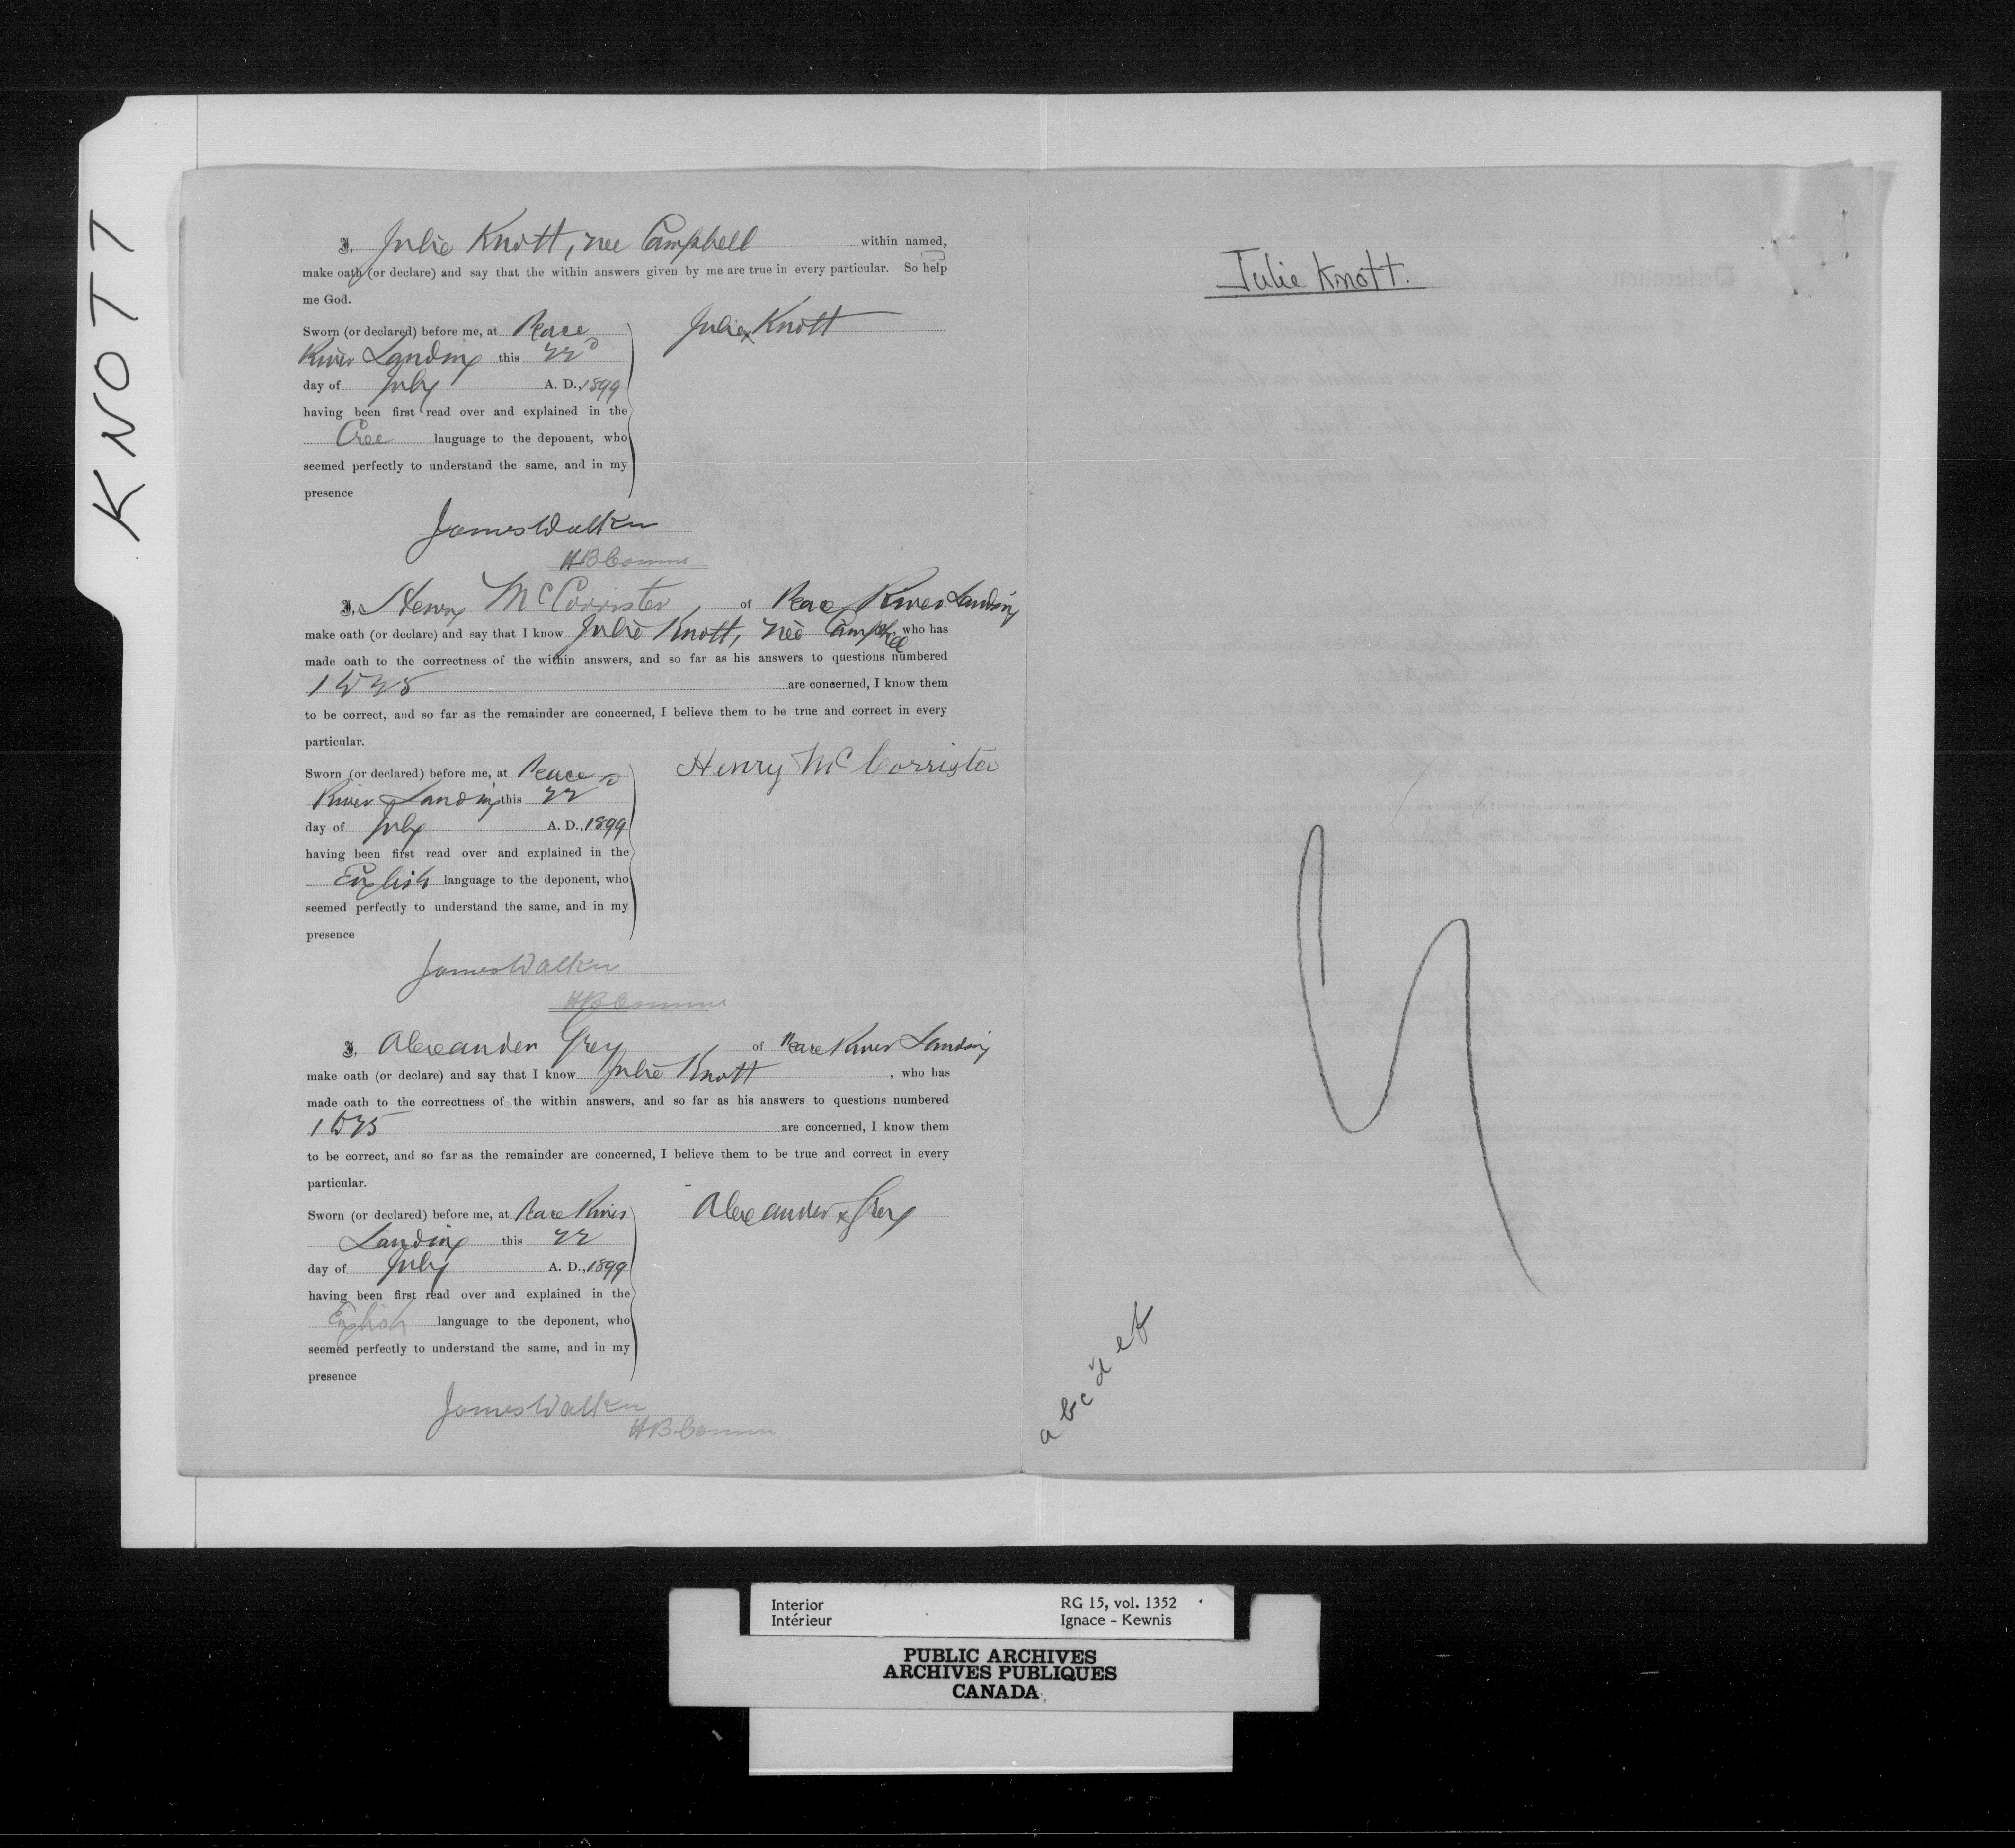 KNOTT
I, Julie Knott, nee Campbell within named,
make oath (or declare) and say that the within answers given by me are true in every particular. So help
me God.
Sworn (or declared) before me, at Peace
River Landing this 22D
day of July A. D., 1899
having been first read over and explained in the
Cree language to the deponent, who
seemed perfectly to understand the same, and in my
presence
Julie x Knott
James Walker
HB Comme
I, Henry McCorrister, of Peace River Landing
make oath (or declare) and say that I know Julie Knott, nee Campbell, who has
made oath to the correctness of the within answers, and so far as his answers to questions numbered
are concerned, I know them
to be correct, and so far as the remainder are concerned, I believe them to be true and correct in every
particular.
Sworn (or declared) before me, at Peace
River Landing this 22D
day of July A. D., 1899
having been first read over and explained in the
English language to the deponent, who
seemed perfectly to understand the same, and in my
presence
Henry McCorrister
James Walker
HB Comme
I, Alexander Grey of Peace River Landing
make oath (or declare) and say that I know Julie Knott, who has
made oath to the correctness of the within answers, and so far as his answers to questions numbered
are concerned, I know them
to be correct, and so far as the remainder are concerned, I believe them to be true and correct in every
particular.
Sworn (or declared) before me, at Peace River
Landing this 22
day of July A. D., 1899
having been first read over and explained in the
English language to the deponent, who
seemed perfectly to understand the same, and in my
presence
Alexander x Grey
James Walker
HB Comm
Julie Knott.
a b c d e f
Interior
Intérieur
RG 15, vol. 1352
Ignace - Kewnis
PUBLIC ARCHIVES
ARCHIVES PUBLIQUES
CANADA